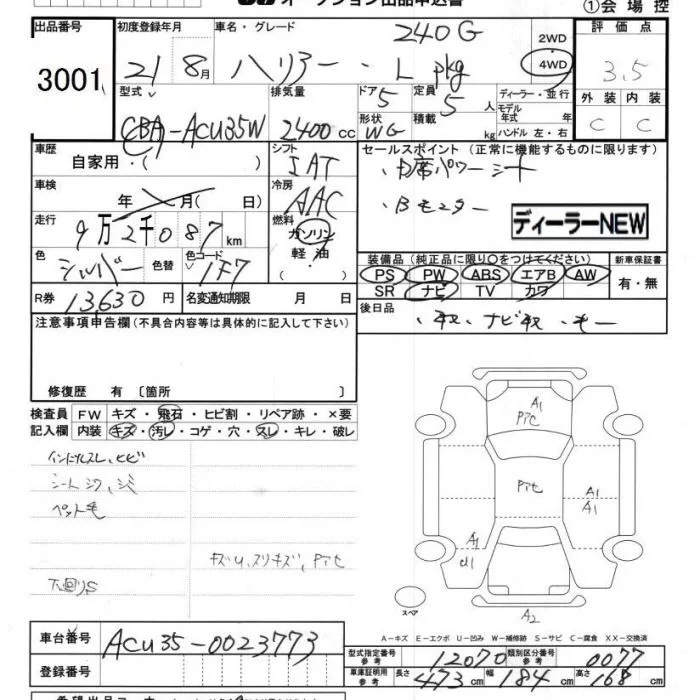 オークション出品申込書
①会場控
出品番号 初度登録年月 車名・グレード 240G 2WD 評価点
3001 21 8月 ハリアー・L pkg 4WD 3.5
型式 排気量 ドア 5 定員 5人 ディーラー・並行 外装 内装
CBA-ACU35W 2400cc 形状 WG 積載 kg モデル年式 年 ハンドル 左・右 C C
車歴 自家用・( ) シフト IAT セールスポイント(正常に機能するものに限ります)
・D席パワーシート
車検 年 月( 日) 冷房 AAC ・Bモニター
走行 9万2千087km 燃料 ガソリン・軽油・ ディーラーNEW
色 シルバー 色替 色コード 1F7 装備品(純正品に限り〇をつけてください) 新車保証書
PS PW ABS エアB AW 有・無
R券 13,630円 名変通知期限 月 日 SR ナビ TV カワ
注意事項申告欄(不具合内容等は具体的に記入して下さい) 後日品 ・取、ナビ取
修復歴 有〔箇所 〕
検査員 FW キズ・飛石・ヒビ割・リペア跡・×要
記入欄 内装 キズ・汚レ・コゲ・穴・スレ・キレ・破レ
シートシワ、シミ
ペット毛
キズU、スリキズ、Pite
下回りS
A1
Pite
Pite
A1
A1
A1
U1
スペア
A2
A−キズ E−エクボ U−凹み W−補修跡 S−サビ C−腐食 XX−交換済
車台番号 ACU35-0023773
型式指定番号 参考 12070 類別区分番号 参考 0077
登録番号 車庫証明用 参考 長さ 473cm 幅 184cm 高さ 168cm